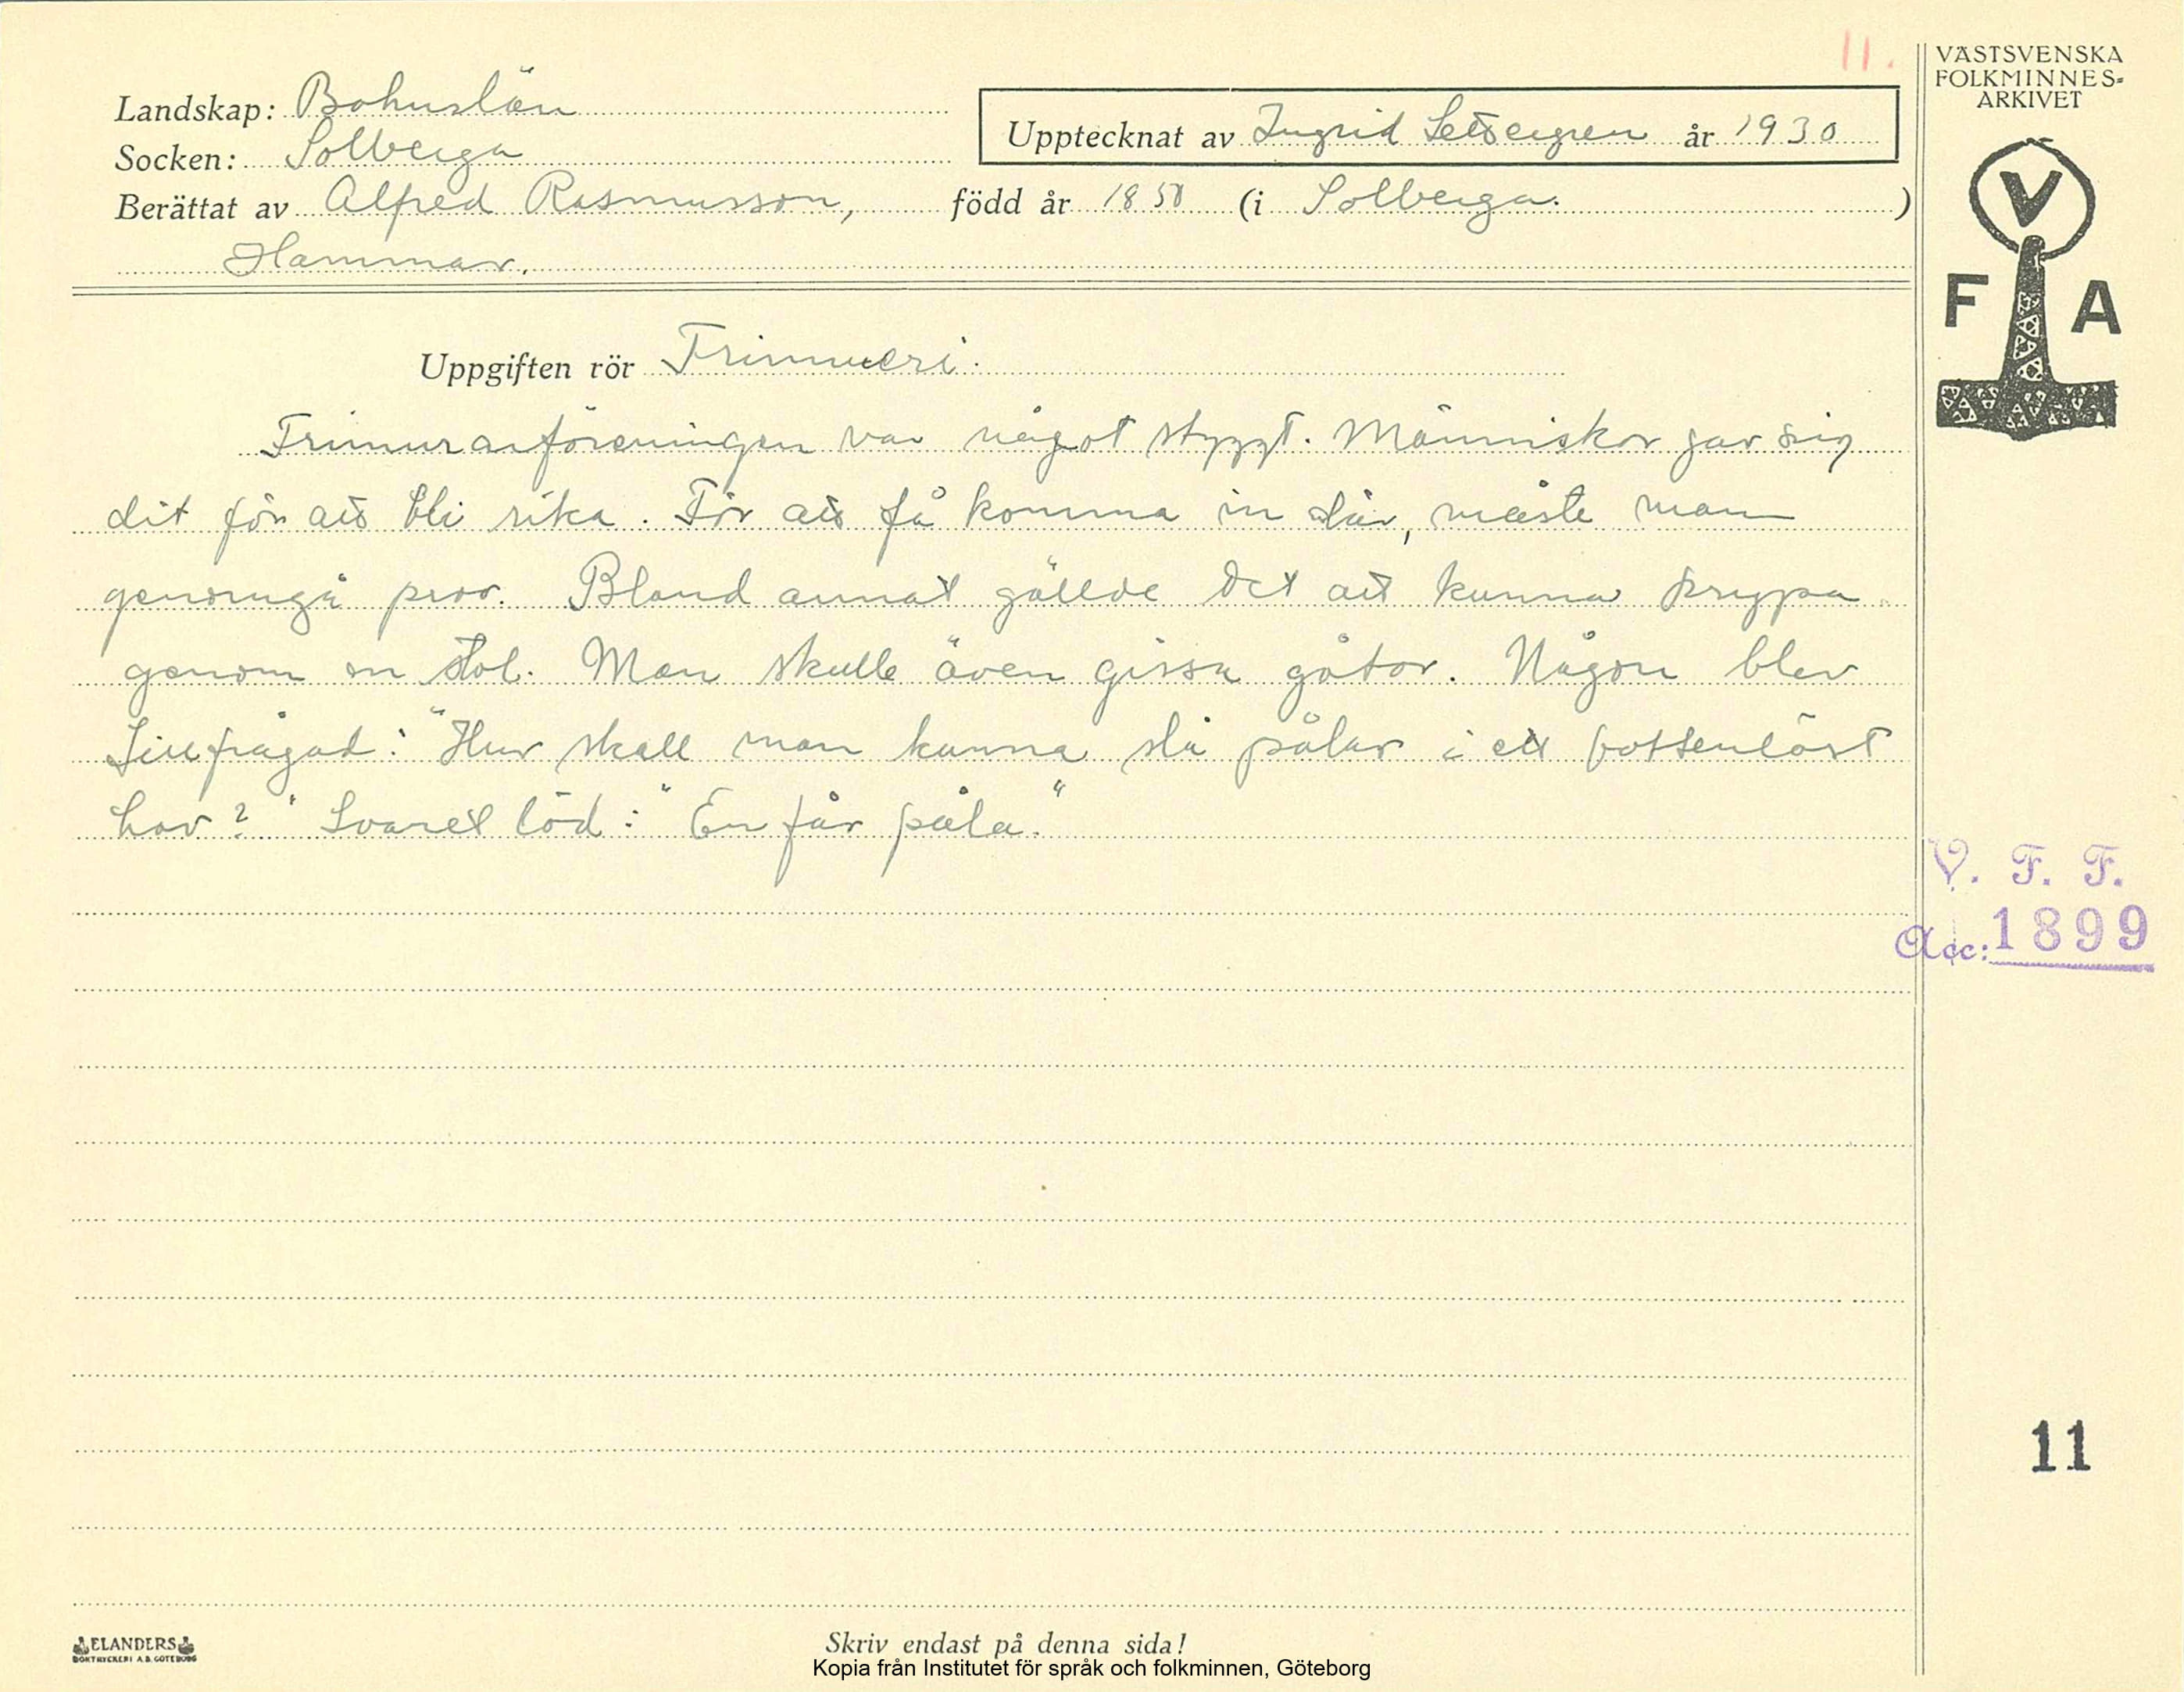 11.
VÄSTSVENSKA
FOLKMINNES-
ARKIVET
Landskap: Bohuslän
Upptecknat av Ingrid år 1930
Socken: Solberga
Berättat av Alfred Rasmusson, född år 1850 (i Solberga. )
Hammar.
V
F A
Uppgiften rör Frimureri.
Frimurarföreningen var något styggt. Människor gav sig
dit för att bli rika. För att få komma in där, måste man
genomgå prov. Bland annat gällde det att kunna krypa
genom en stol. Man skulle även gissa gåtor. Någon blev
tillfrågad: "Hur skall man kunna slå pålar i ett bottenlöst
hav?" Svaret löd: "En får påla."
V. F. F.
Acc: 1899
11
ELANDERS
BOKTRYCKERI A.B. GÖTEBORG
Skriv endast på denna sida!
Kopia från Institutet för språk och folkminnen, Göteborg